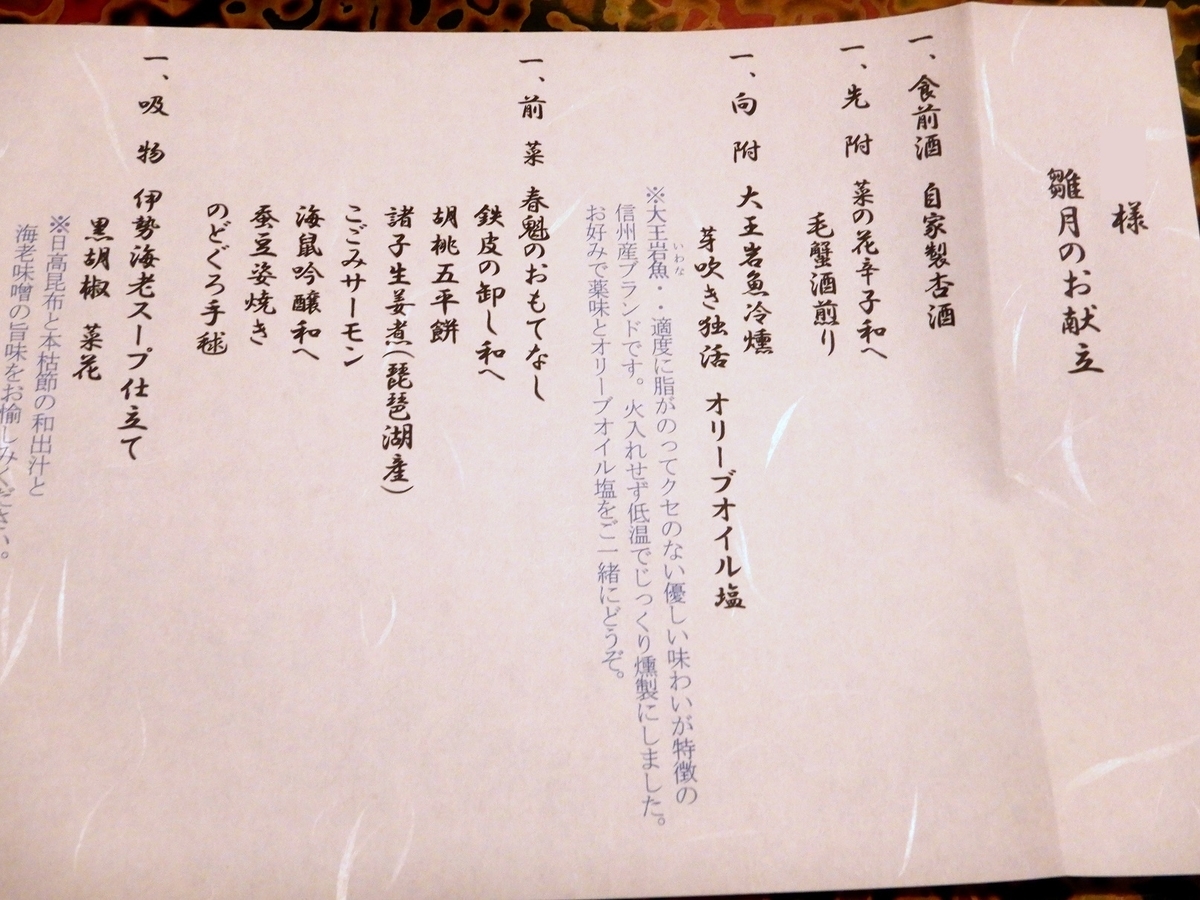 様
雛月のお献立
一、食前酒 自家製杏酒
一、先附 菜の花辛子和へ
毛蟹酒煎り
一、向附 大王岩魚冷燻
芽吹き独活 オリーブオイル塩
※大王岩魚・・適度に脂がのってクセのない優しい味わいが特徴の
いわな
信州産ブランドです。火入れせず低温でじっくり燻製にしました。
お好みで薬味とオリーブオイル塩をご一緒にどうぞ。
一、前菜 春魁のおもてなし
鉄皮の卸し和へ
胡桃五平餅
諸子生姜煮(琵琶湖産)
こごみサーモン
海鼠吟醸和へ
蚕豆姿焼き
のどぐろ手毬
一、吸物 伊勢海老スープ仕立て
黒胡椒 菜花
※日高昆布と本枯節の和出汁と
海老味噌の旨味をお愉しみください。